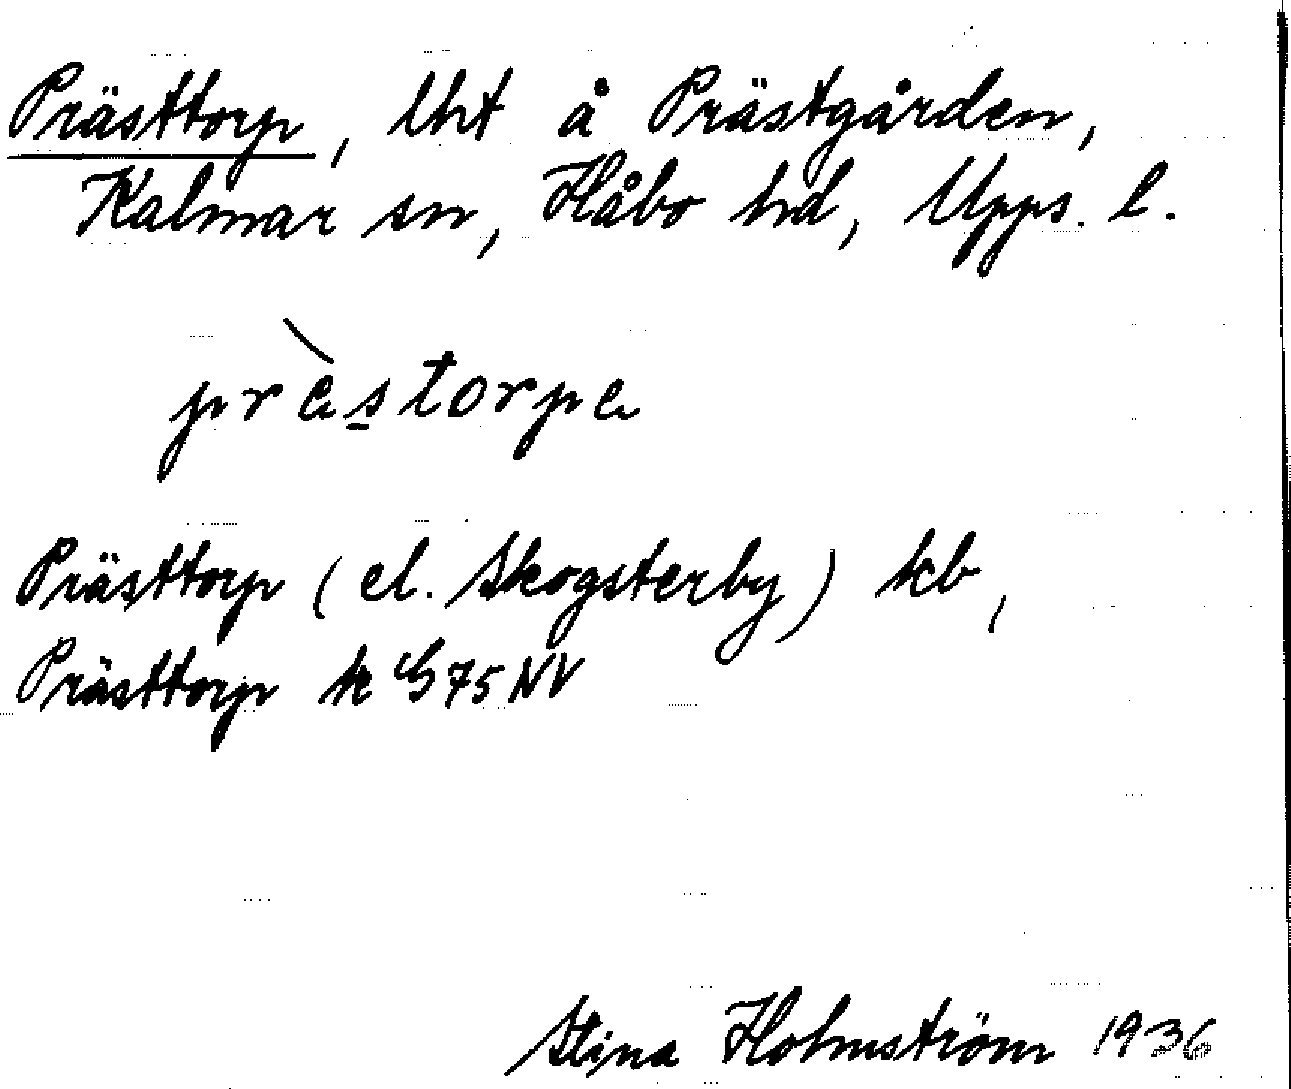 Prästtorp, lht å Prästgården,
Kalmar sn, Håbo hd, Upps. l.
prèstorpe
Prästtorp (el. Skogsterby) kb,
Prästtorp k G 75 NV
Stina Holmström 1936